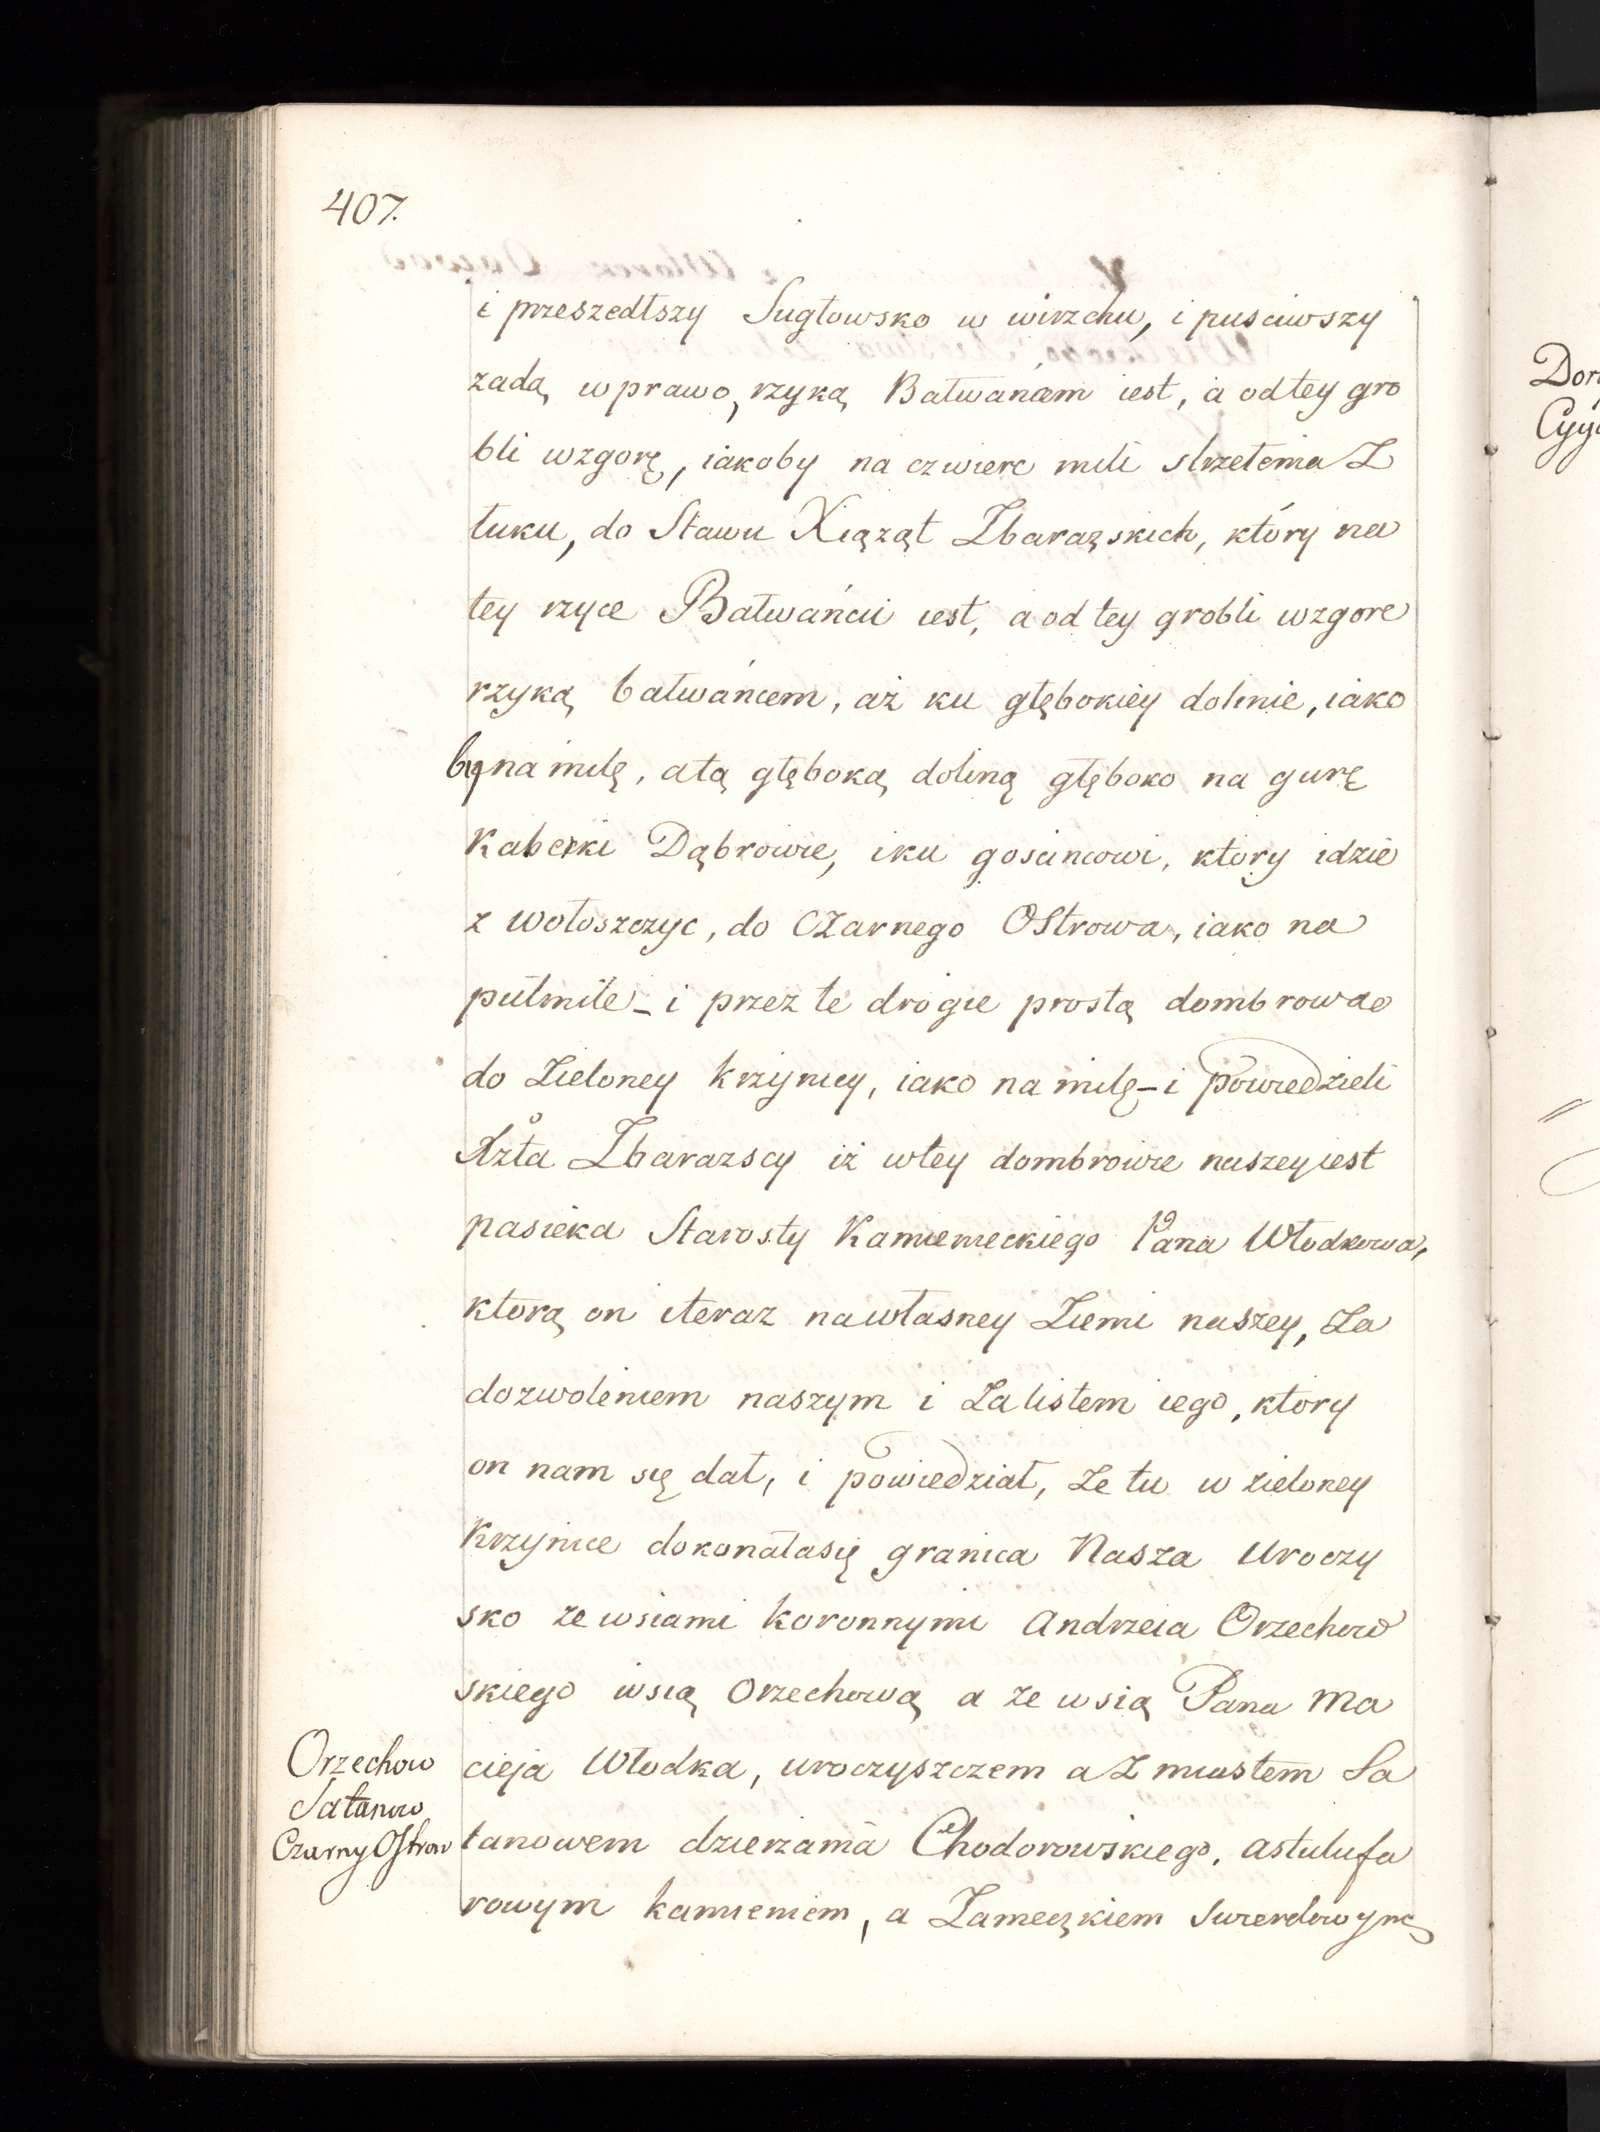 407.
i przeszedłszy Sugłowsko w wirzchu, i pusciwszy
zadą wprawo, rzyką Batwańcem iest, a odtey gro
bli wzgorę, iakoby na czwierc mili strzelenia Z
łuku, do Stawu Xiążąt Zbarazskich, który na
tey rzyce Batwańcu iest, a od tey grobli wzgore
rzyką batwańcem, aż ku głębokiey dolinie, iako
by na milę, atą głęboką doliną głęboko na gurę
Kaberki Dąbrowie, iku goscincowi, ktory idzie
z Wołoszczyc, do Czarnego Ostrowa, iako na
pułmile_ i przez te drogie prostą dombrowao
do Zieloney Krzynicy, iako na milę_ i powiedzieli
Xżta Zbarazscy iż wtey dombrowie naszey iest
pasieka Starosty Kamienieckiego Pana Włodkowa,
ktorą on iteraz nawłasney Ziemi naszey, Za
dozwoleniem naszym i Zalistem iego, ktory
on nam się dał, i powiedział, Ze tu w zieloney
Krzynice dokonałasię granica Nasza Uroczy
sko ze wsiami Koronnymi Andrzeia Orzechow
skiego iwsią Orzechową a ze wsią Pana Ma
cieja Włodka, uroczyszczem a Z miastem Sa
tanowem dzierzama Chodorowskiego, astulufa
rowym kamieniem, a Zameczkiem Swerdowym
Orzechow
Satanow
Czarny Ostrow
Dor
Cyy